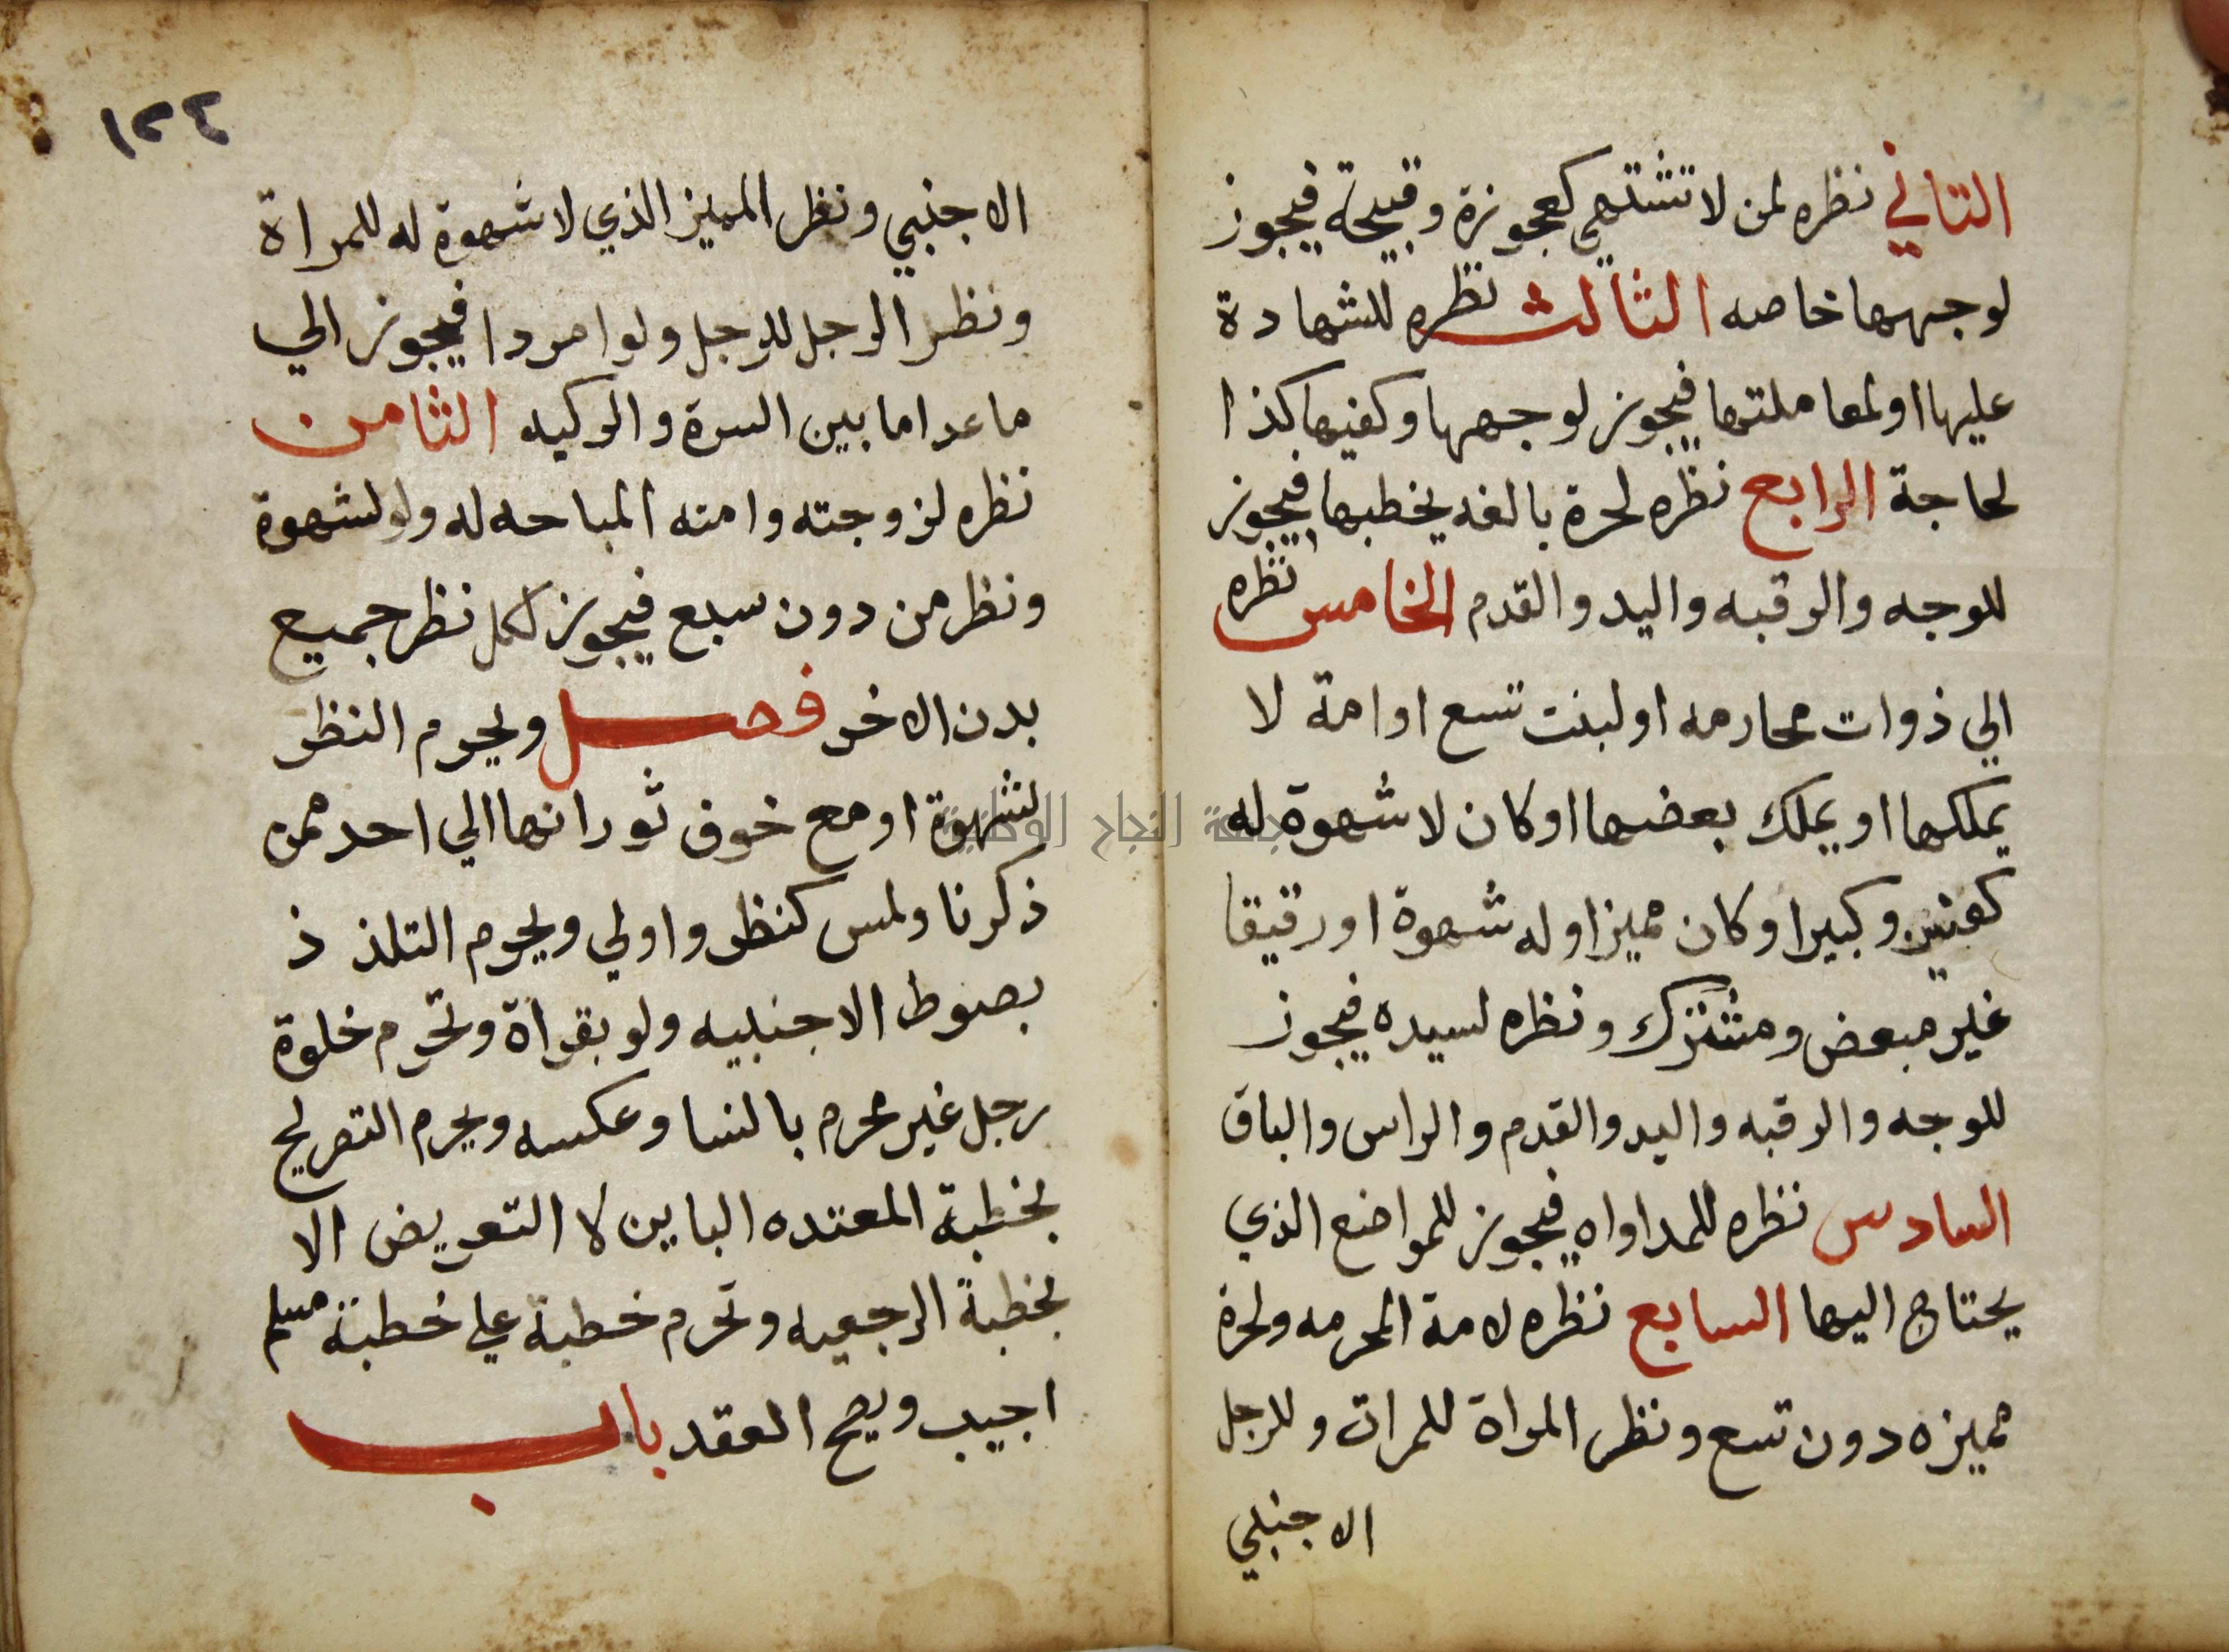 التاني نظره لمن لا تشتهي كعجوزة وقبيحة فيجوز
لوجهها خاصه الثالث نظره للشهادة
عليها او لمعاملتها فيجوز لوجهها وكفيها كذا
لحاجة الرابع نظره لحرة بالغه يخطبها فيجوز
للوجه والرقبه واليد والقدم الخامس نظره
الي ذوات محارمه او لبنت تسع او امة لا
يملكها او يملك بعضها او كان لا شهوة له
كعنين وكبير او كان مميزا وله شهوة او رقيقا
غير مبعض ومشترك ونظره لسيده فيجوز
للوجه والرقبه واليد والقدم والراس والباق
السادس نظره للمداواه فيجوز للمواضع الذي
يحتاج اليها السابع نظره لامة المحرمه ولحرة
مميزه دون تسع ونظر المراة للمرات وللرجل
الاجنبي
١٢٣
الاجنبي ونظر المميز الذي لا شهوة له للمراة
ونظر الرجل للرجل ولو امردا فيجوز الي
ما عدا ما بين السرة والركبه الثامن
نظره لزوجته وامته المباحه له ولو لشهوة
ونظر من دون سبع فيجوز لكل نظر جميع
بدن الاخر فصل ويحرم النظر
لشهوة او مع خوف ثورانها الي احد ممن
ذكرنا ولمس كنظر واولي ويحرم التلذذ
بصوط الاجنبيه ولو بقراة وتحرم خلوة
رجل غير محرم بالنسا وعكسه ويحرم التصريح
بخطبة المعتده الباين لا التعريض الا
بخطبة الرجعيه وتحرم خطبة علي خطبة مسلم
اجيب ويصح العقد باب
جامعة النجاح الوطنية